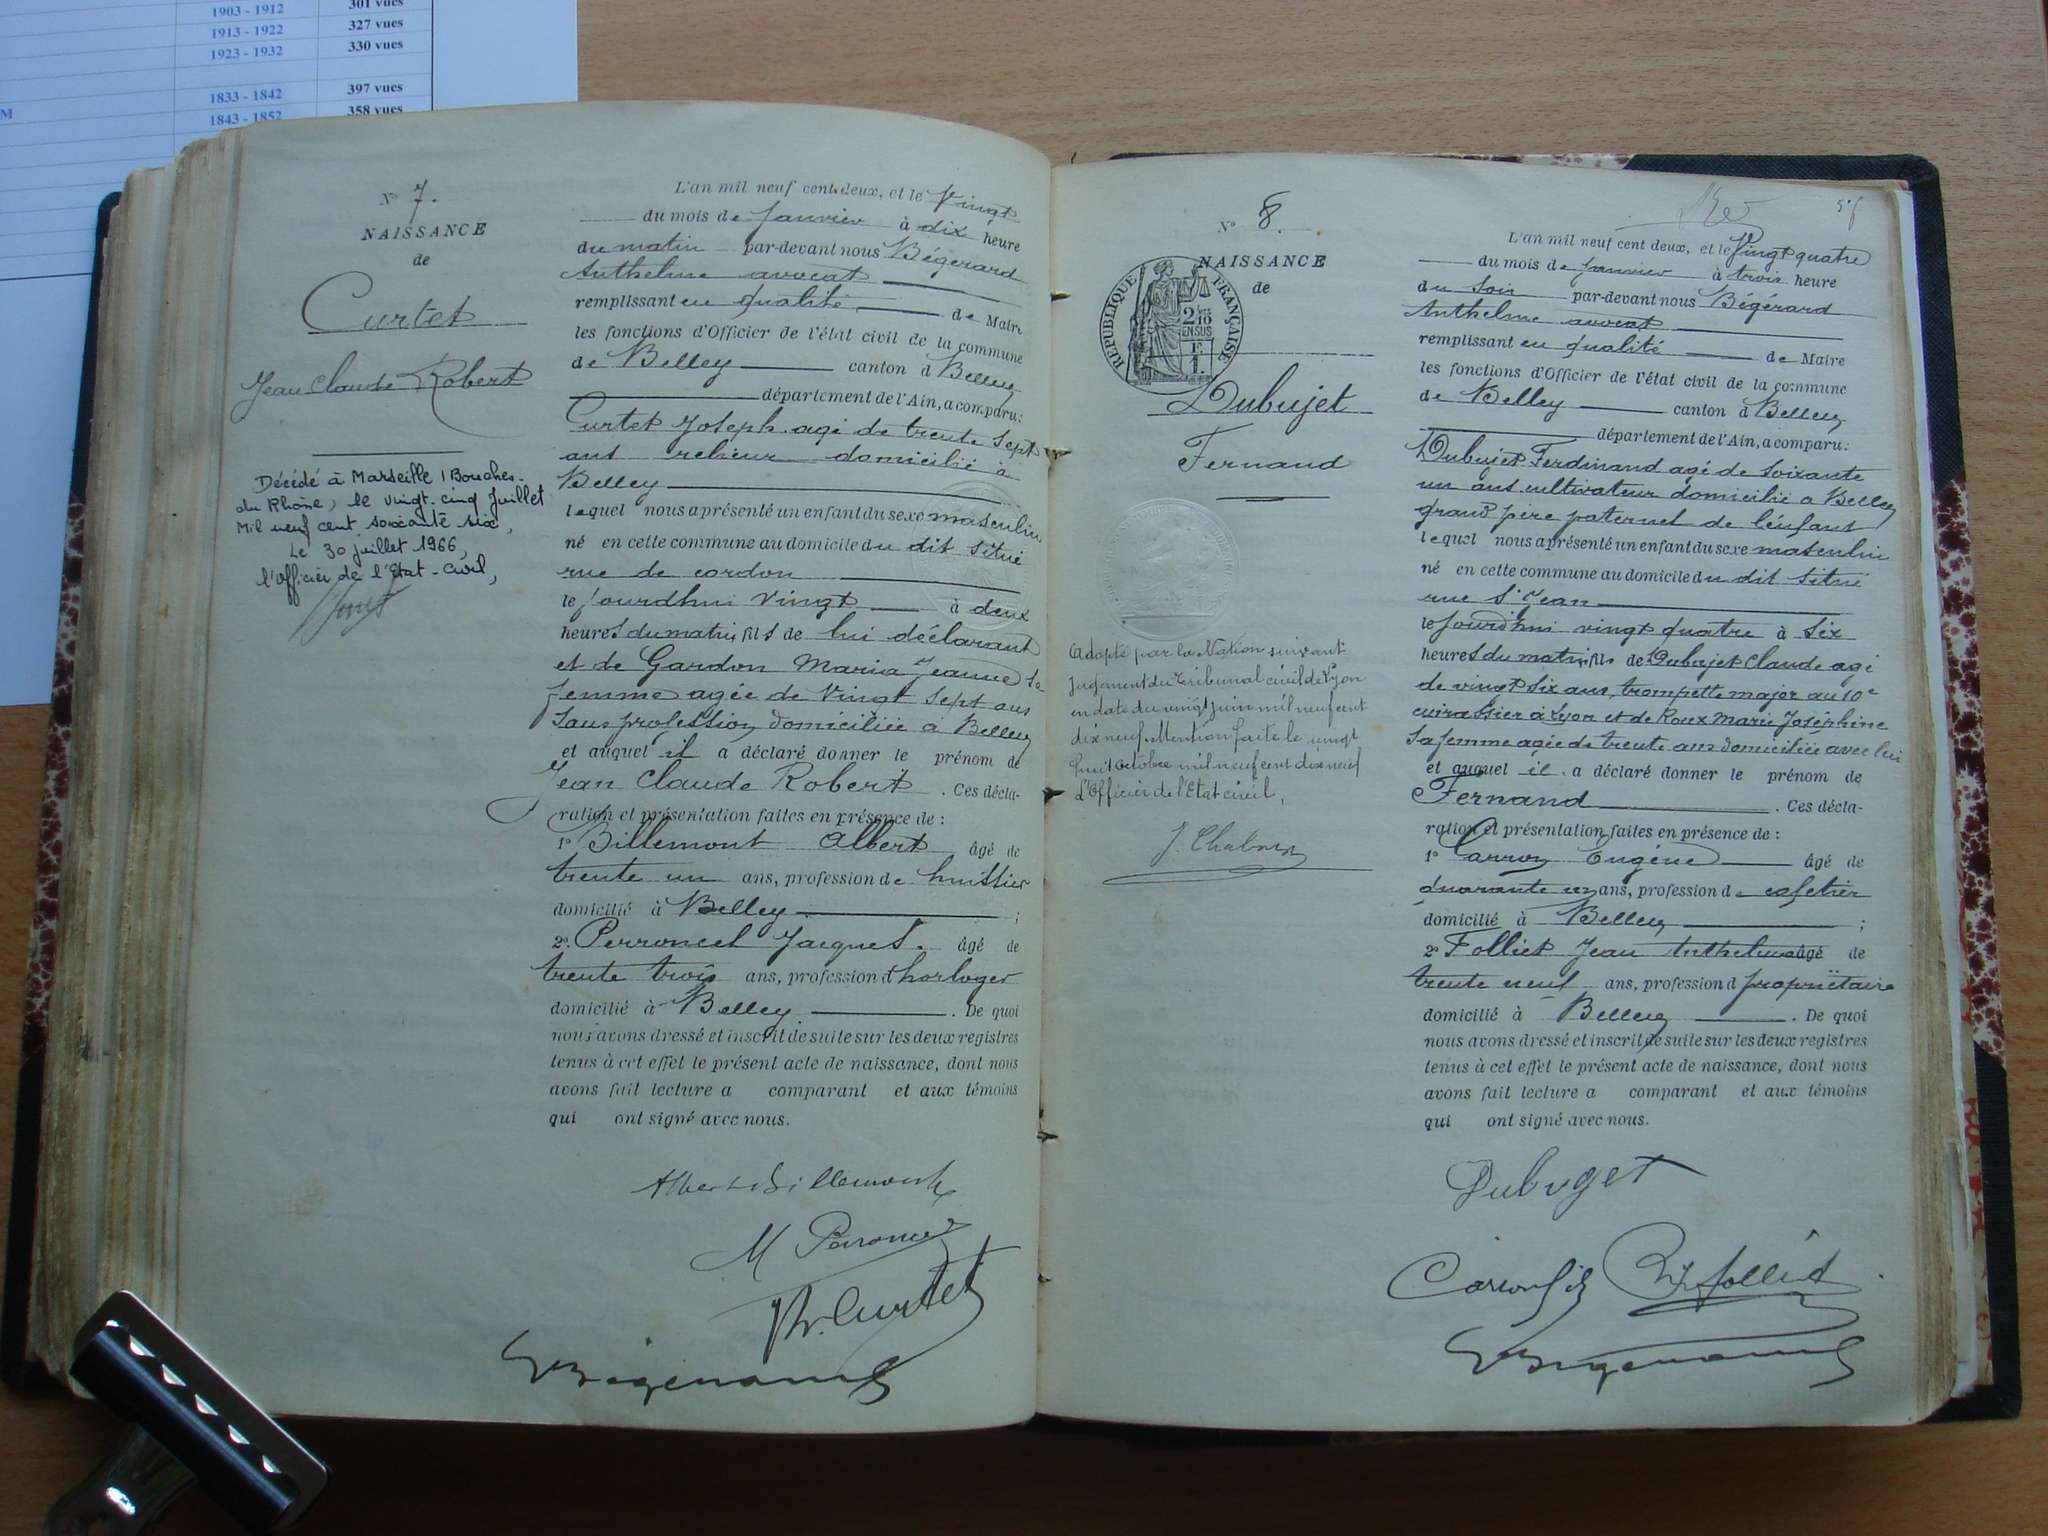 1903 - 1912 301 vues
1913 - 1922 327 vues
1923 - 1932 330 vues
1833 - 1842 397 vues
M 1843 - 1852 358 vues
N° 7.
NAISSANCE
de
Curtet
Jean Claude Robert
Décédé à Marseille (Bouches-
du Rhône, le vingt-cinq Juillet
Mil neuf cent soixante six,
Le 30 juillet 1966,
l'officier de l'Etat-Civil,
L'an mil neuf cent deux, et le Vingt
du mois de Janvier à dix heure
du matin par-devant nous Bégérard
Anthelme avocat
remplissant en qualité de Maire
les fonctions d'Officier de l'état civil de la commune
de Belley canton d Belley
département de l'Ain, a comparu:
Curtet Joseph agé de trente sept
ans relieur domicilié à
Belley
lequel nous a présenté un enfant du sexe masculin
né en cette commune au domicile du dit situé
rue de cordon
le jourdhui vingt à deux
heures du matin, fils de lui déclarant
et de Gardon Maria Jeanne sa
femme agée de Vingt sept ans
sans profession domiciliée à Belley
et auquel il a déclaré donner le prénom de
Jean Claude Robert . Ces décla-
ration et présentation faites en présence de :
1° Billemont Albert âgé de
trente un ans, profession de huissier
domicilié à Belley ;
2° Perroncel Jacques. âgé de
trente trois ans, profession d horloger
domicilié à Belley . De quoi
nous avons dressé et inscrit de suite sur les deux registres
tenus à cet effet le présent acte de naissance, dont nous
avons fait lecture a comparant et aux témoins
qui ont signé avec nous.
Albert Billemont
M Perroncel
Curtet
Bégérard
N° 8.
NAISSANCE
de
RÉPUBLIQUE FRANÇAISE
2/10 EN SUS
Dubujet
Fernand
Adopté par la Nation suivant
jugement du Tribunal civil de Lyon
en date du vingt juin mil neuf cent
dix neuf. Mention faite le vingt
huit octobre mil neuf cent dix neuf
L'Officier de l'Etat civil,
L'an mil neuf cent deux, et le Vingt quatre
du mois de Janvier à trois heure
du soir par-devant nous Bégérard
Anthelme avocat
remplissant en qualité de Maire
les fonctions d'Officier de l'état civil de la commune
de Belley canton d Belley
département de l'Ain, a comparu:
Dubujet Ferdinand agé de soixante
un ans cultivateur domicilié a Belley
grand père paternel de l'enfant
lequel nous a présenté un enfant du sexe masculin
né en cette commune au domicile du dit situé
rue St Jean
le jourdhui vingt quatre à six
heures du matin, fils de Dubujet Claude agé
de vingt six ans, trompette major au 10e
cuirassier à Lyon et de Roux Marie Joséphine
sa femme agée de trente ans domiciliée avec lui
et auquel il a déclaré donner le prénom de
Fernand . Ces décla-
ration et présentation faites en présence de :
1° Carron Eugène âgé de
quarante un ans, profession de cafetier
domicilié à Belley ;
2° Folliet Jean Anthelme âgé de
trente neuf ans, profession d propriétaire
domicilié à Belley . De quoi
nous avons dressé et inscrit de suite sur les deux registres
tenus à cet effet le présent acte de naissance, dont nous
avons fait lecture a comparant et aux témoins
qui ont signé avec nous.
Dubuget
Carron fils
Folliet
Bégérard